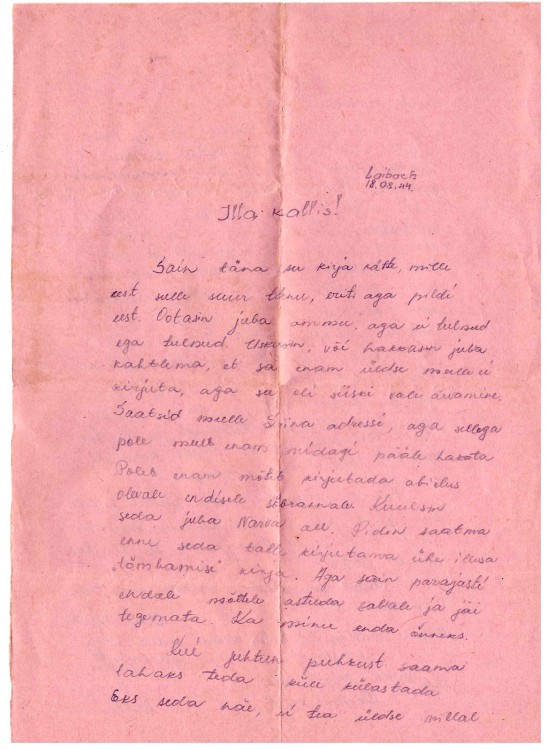 Laibach
18.08.44.
Illa kallis!
Sain täna su kirja kätte, mille
eest sulle suur tänu, eriti aga pildi
eest. Ootasin juba ammu, aga ei tulnud
ega tulnud. Uskusin, või hakkasin juba
kahtlema, et sa enam üldse mulle ei
kirjuta, aga su oli siiski vale arvamine.
Saatsid mulle aadressi, aga sellega
pole mull enam midagi pääle hakata
Poleb enam mõtet kirjutada abielus
olevale endisele sõbrannale. Kuulsin
seda juba Narva all. Pidin saatma
enne seda talle kirjutama ühe ilusa
"lõmbamise" kirja. Aga sain parajasti
endale mõttele astuda sabale ja jäi
tegemata. Ka minu enda õnneks.
Kui juhtun puhkust saama
lähaks teda küll külastada
Eks seda näe, ei tea üldse millal